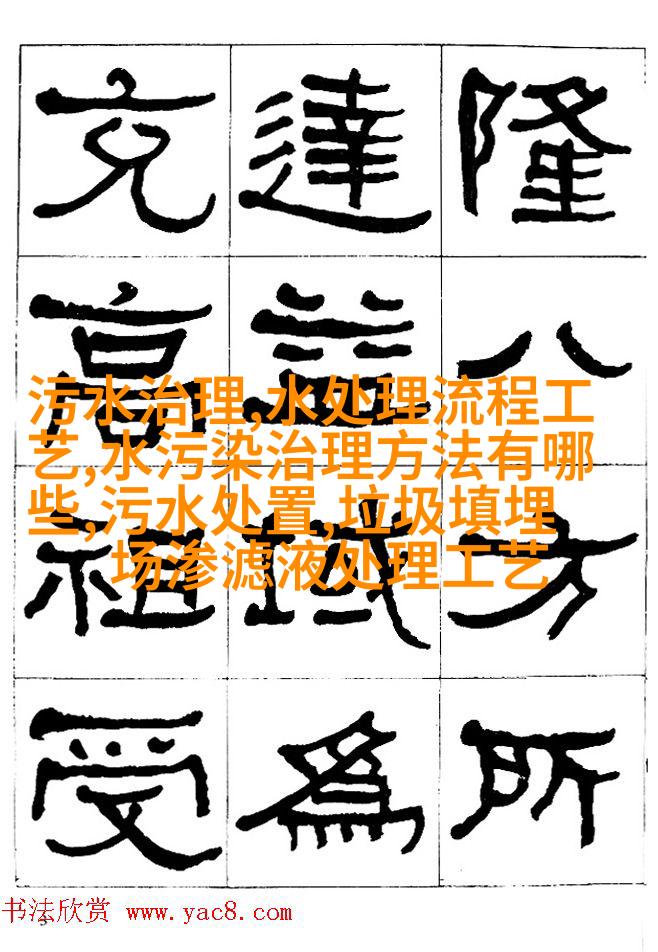 隆八方所
達益域爲
充高祖受
污水治理,水处理流程工
艺,水污染治理方法有哪
些,污水处置,垃圾填埋
场渗滤液处理工艺
书法欣赏 www.yac8.com
3